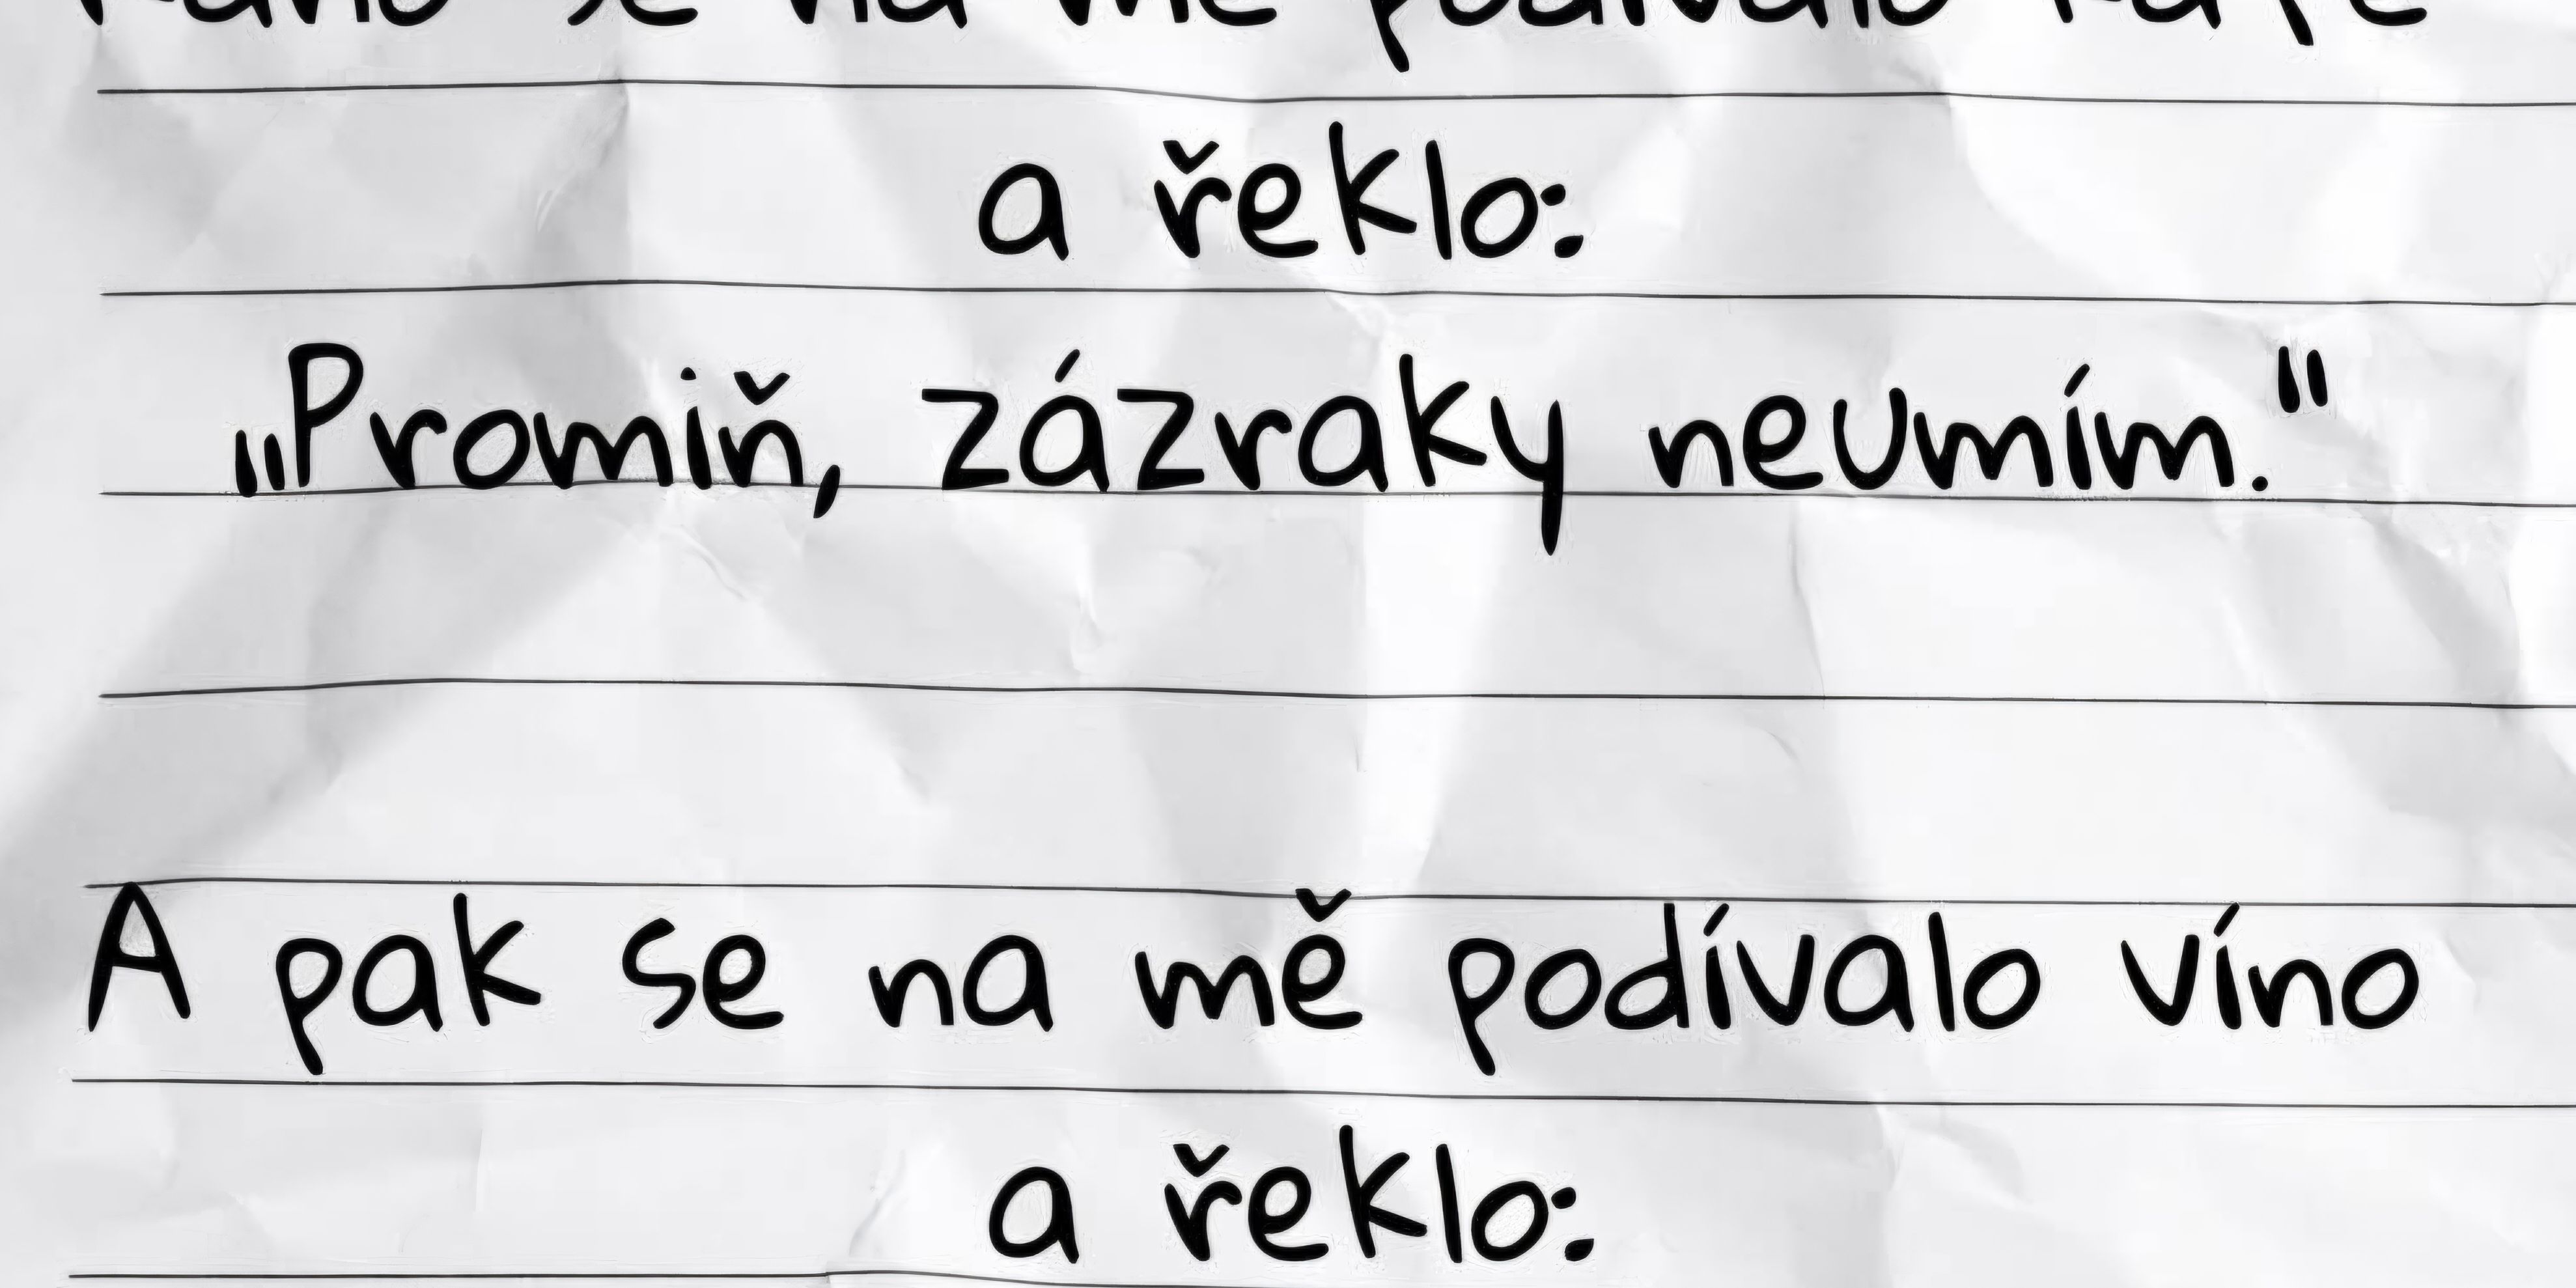 Ráno se na mě podívalo kafe
a řeklo:
„Promiň, zázraky neumím."
A pak se na mě podívalo víno
a řeklo: